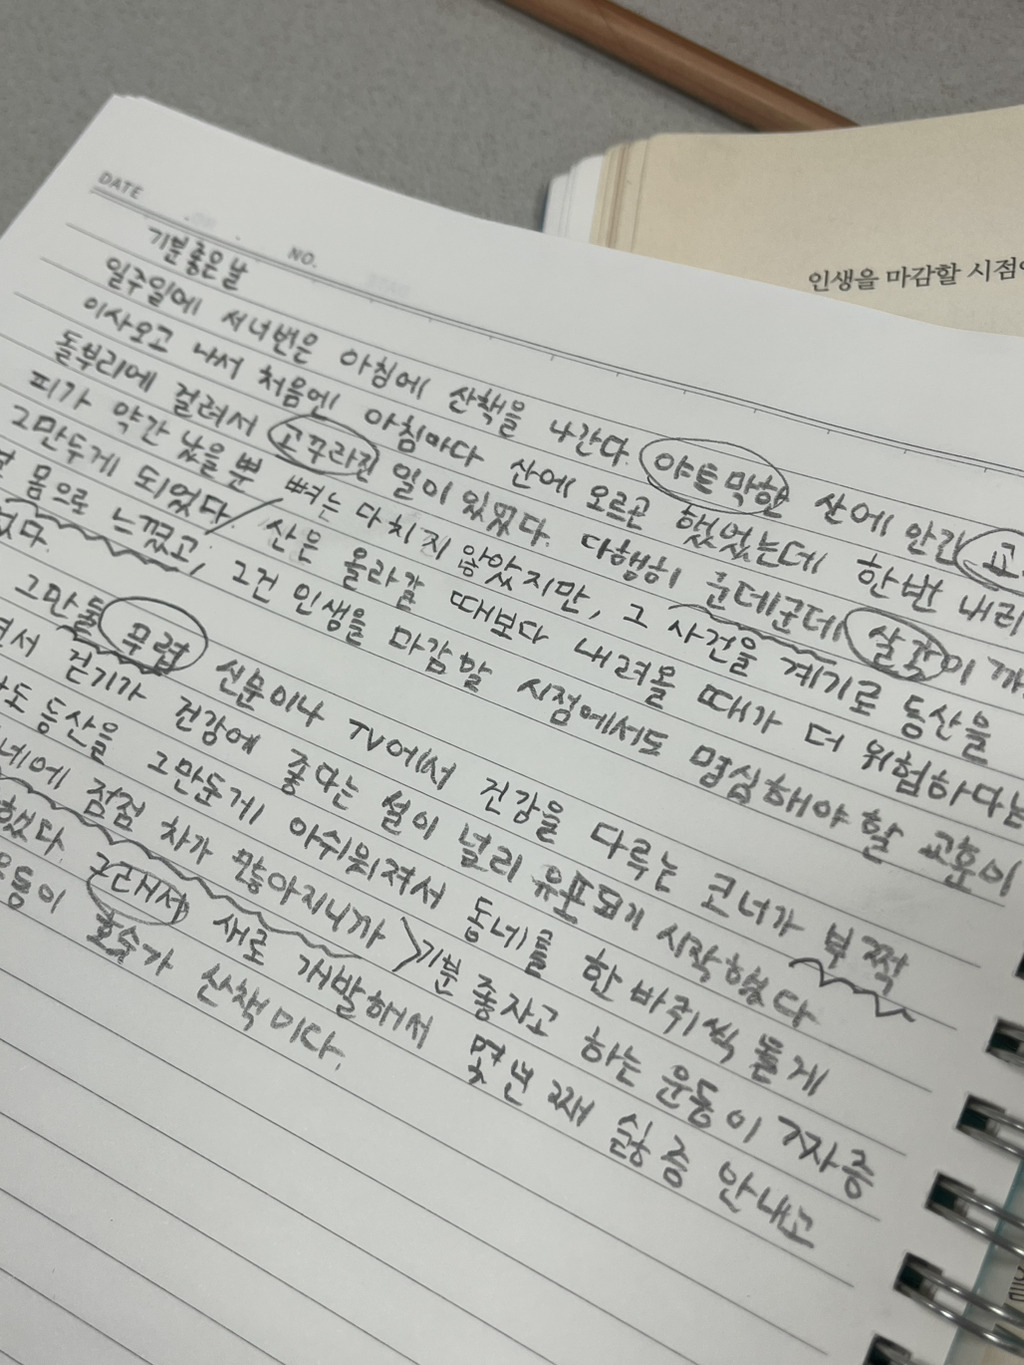 인생을 마감할 시점
DATE NO.
기분좋은 날
일주일에 서너번은 아침에 산책을 나간다. 야트막한 산에 안긴
이사오고 나서 처음엔 아침마다 산에 오르곤 했었는데 한번
돌부리에 걸려서 고꾸라진 일이 있었다. 다행히 군데군데 살갗이
피가 약간 났을 뿐 뼈는 다치지 않았지만, 그 사건을 계기로 등산을
그만두게 되었다. 산은 올라갈 때보다 내려올 때가 더 위험하다는
몸으로 느꼈고, 그건 인생을 마감할 시점에서도 명심해야 할 교훈이
었다.
그만둘 무렵 신문이나 TV에서 건강을 다루는 코너가 부쩍
면서 걷기가 건강에 좋다는 설이 널리 유포되기 시작했다
도 등산을 그만둔게 아쉬워져서 동네를 한 바퀴씩 돌게
네에 점점 차가 많아지니까 기분 좋자고 하는 운동이 짜증
했다. 그래서 새로 개발해서 몇 년 째 싫증 안내고
운동이 호숫가 산책이다.